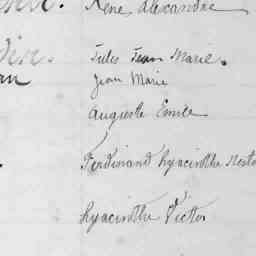 René Alexandre
Jules Jean Marie.
Jean Marie
Auguste Emile
Ferdinand hyacinthe Nesto
hyacinthe Victor